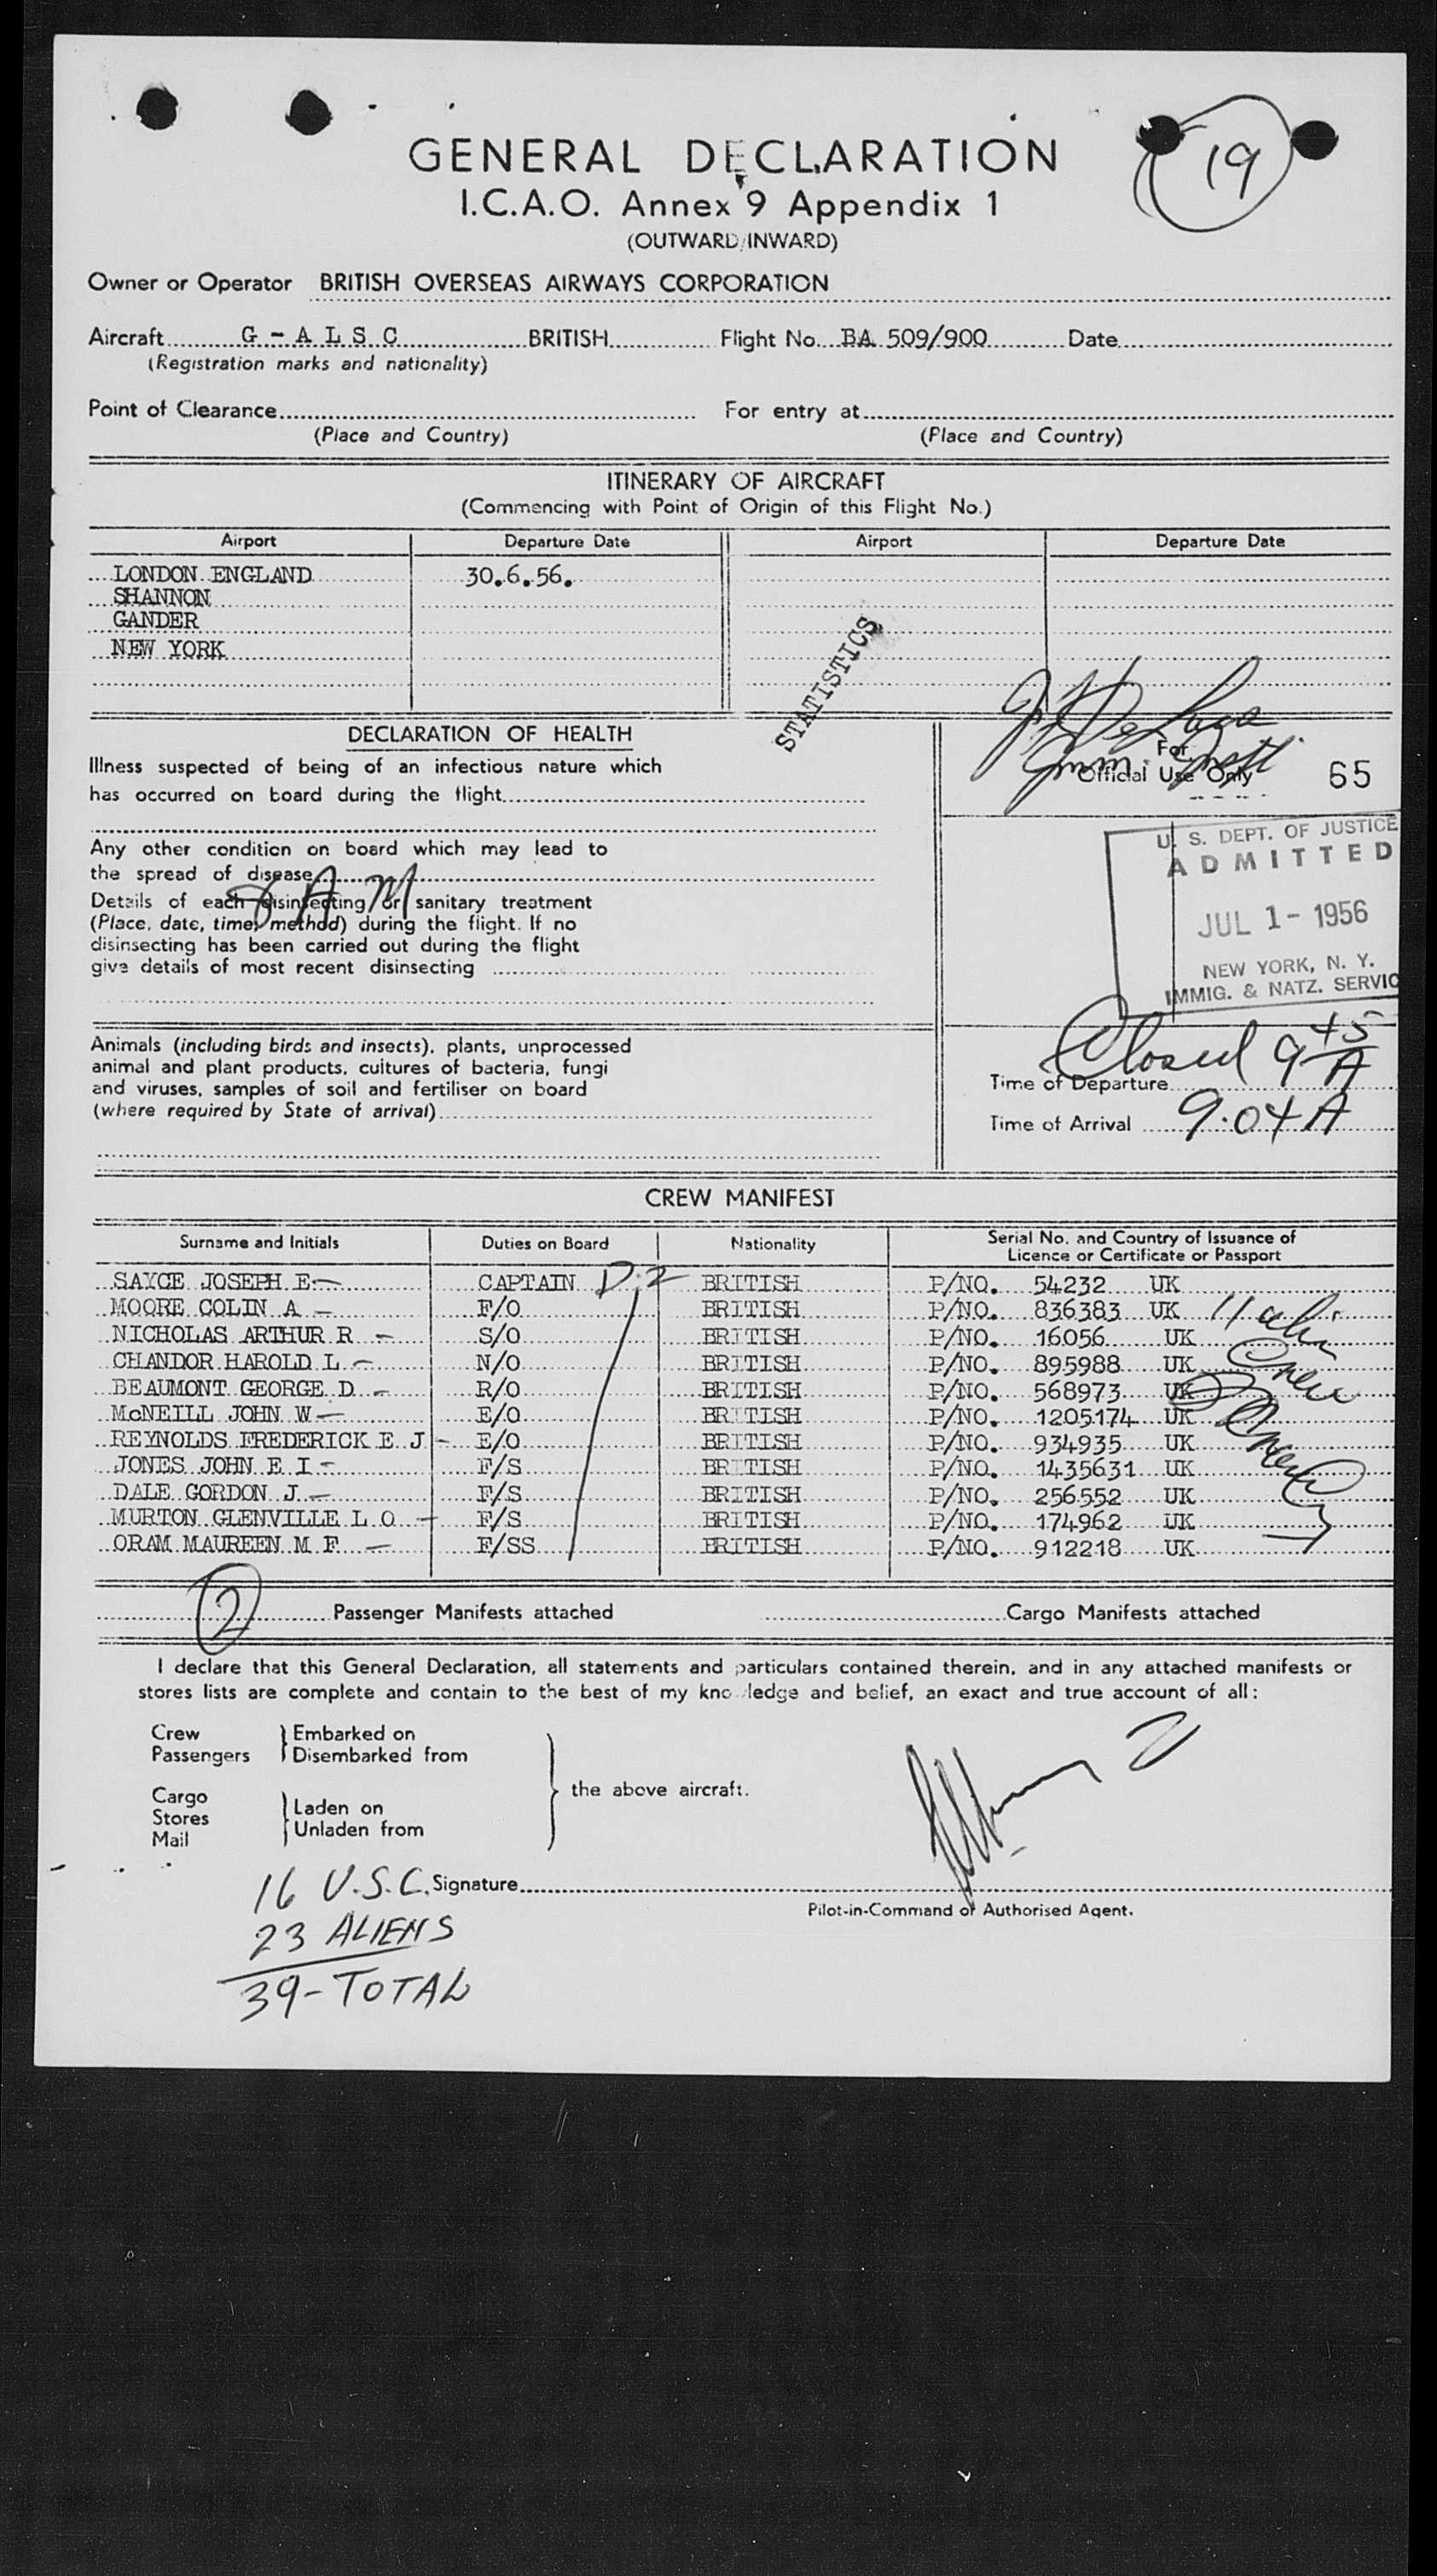 19
GENERAL DECLARATION
I.C.A.O. Annex 9 Appendix 1
(OUTWARD/INWARD)
Owner or Operator BRITISH OVERSEAS AIRWAYS CORPORATION
Aircraft G - A L S C BRITISH Flight No. BA 509/900 Date
(Registration marks and nationality)
Point of Clearance For entry at
(Place and Country) (Place and Country)
ITINERARY OF AIRCRAFT
(Commencing with Point of Origin of this Flight No.)
Airport Departure Date Airport Departure Date
LONDON ENGLAND 30.6.56.
SHANNON
GANDER
NEW YORK
STATISTICS
DECLARATION OF HEALTH
Illness suspected of being of an infectious nature which
has occurred on board during the flight
Any other condition on board which may lead to
the spread of disease
Details of each disinsecting or sanitary treatment
(Place, date, time, method) during the flight. If no
disinsecting has been carried out during the flight
give details of most recent disinsecting
Animals (including birds and insects), plants, unprocessed
animal and plant products, cultures of bacteria, fungi
and viruses, samples of soil and fertiliser on board
(where required by State of arrival)
For
Official Use Only 65
U. S. DEPT. OF JUSTICE
ADMITTED
JUL 1 - 1956
NEW YORK, N. Y.
IMMIG. & NATZ. SERVIC
Closed 9 45 A
Time of Departure
Time of Arrival 9.04 A
CREW MANIFEST
Surname and Initials Duties on Board Nationality Serial No. and Country of Issuance of
Licence or Certificate or Passport
SAYCE JOSEPH E - CAPTAIN D-2 BRITISH P/NO. 54232 UK
MOORE COLIN A - F/O BRITISH P/NO. 836383 UK 11
NICHOLAS ARTHUR R - S/O BRITISH P/NO. 16056 UK
CHANDOR HAROLD L - N/O BRITISH P/NO. 895988 UK Crew
BEAUMONT GEORGE D - R/O BRITISH P/NO. 568973 UK
McNEILL JOHN W - E/O BRITISH P/NO. 1205174 UK
REYNOLDS FREDERICK E J - E/O BRITISH P/NO. 934935 UK
JONES JOHN E I - F/S BRITISH P/NO. 1435631 UK
DALE GORDON J - F/S BRITISH P/NO. 256552 UK
MURTON GLENVILLE L O - F/S BRITISH P/NO. 174962 UK
ORAM MAUREEN M F - F/SS BRITISH P/NO. 912218 UK
2 Passenger Manifests attached Cargo Manifests attached
I declare that this General Declaration, all statements and particulars contained therein, and in any attached manifests or
stores lists are complete and contain to the best of my knowledge and belief, an exact and true account of all:
Crew Embarked on
Passengers Disembarked from
the above aircraft.
Cargo
Stores Laden on
Mail Unladen from
16 U.S.C. Signature
Pilot-in-Command or Authorised Agent.
23 ALIENS
39-TOTAL